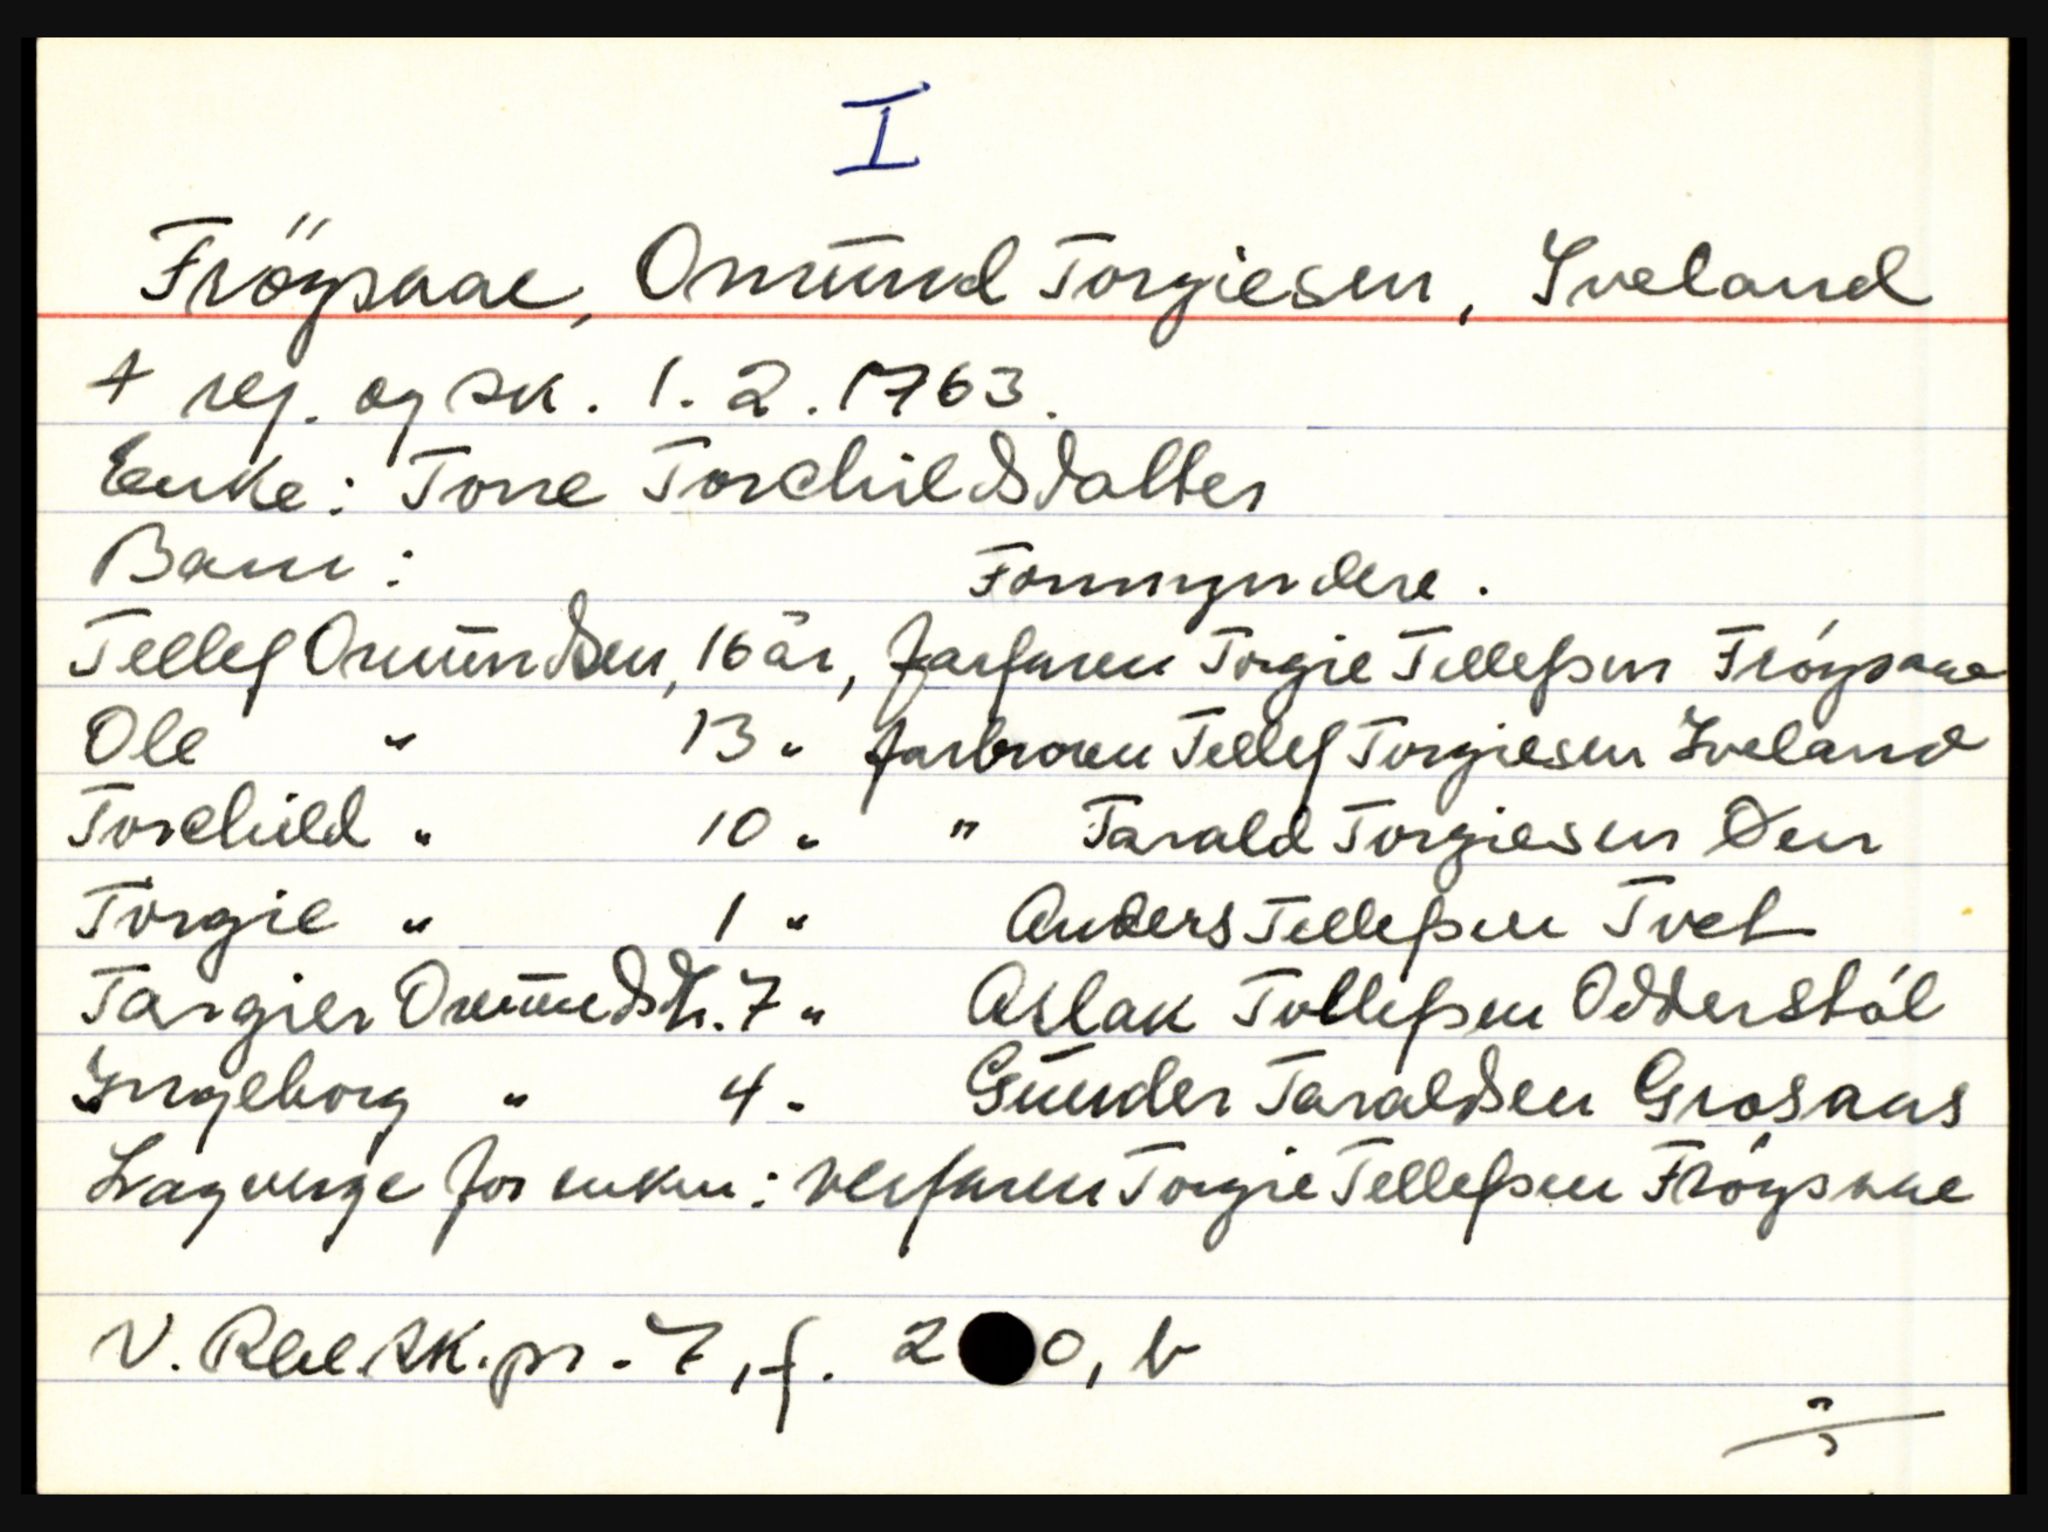 I
Fröysaae, Omund Torgiesen, Iveland
† reg. og sk. 1.2.1763.
Enke: Torre Torchildsdatter
Barn: Formyndere.
Tellef Omundsen, 16 år, farfaren Torgie Tellefsen Fröysaae
Ole " 13 " farbroren Tellef Torgiesen Iveland
Torchild " 10 " " Tarald Torgiesen
Torgie " 1 " Anders Tellefsen Tvet
Targier Omundsdtr. 7 " Aslak Tollefsen Odderstøl
Ingeborg " 4 " Gunder Taraldsen Grosaas
Lagverge for enken: verfaren Torgie Tellefsen Fröysaae
V. Rbl. sk.pr. 7, f. 2 0, b